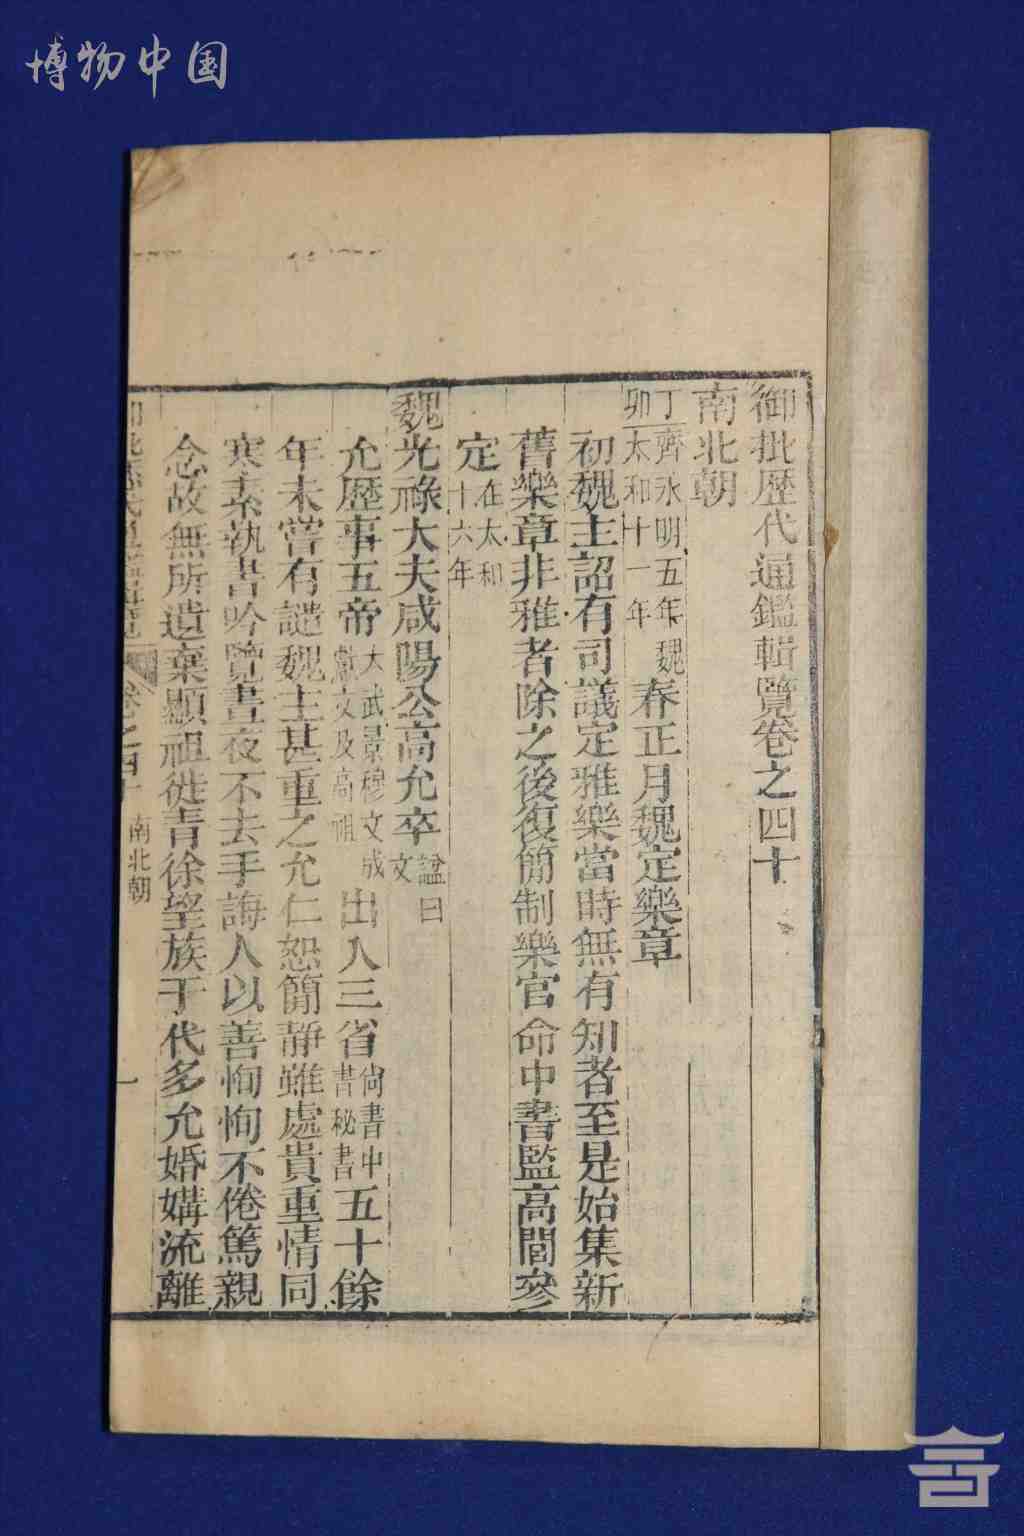 博物中国
御批歷代通鑑輯覽卷之四十
南北朝
丁卯齊永明五年魏太和十一年春正月魏定樂章
初魏主詔有司議定雅樂當時無有知者至是始集新
舊樂章非雅者除之後復簡制樂官命中書監高閭參
定在太和十六年
魏光祿大夫咸陽公高允卒諡曰文
允歷事五帝太武景穆文成獻文及高祖出入三省尙書中書秘書五十餘
年未嘗有譴魏主甚重之允仁恕簡靜雖處貴重情同
寒素執書吟覽晝夜不去手誨人以善恂恂不倦篤親
念故無所遺棄顯祖徙青徐望族于代多允婚媾流離
卷之四十 南北朝 一